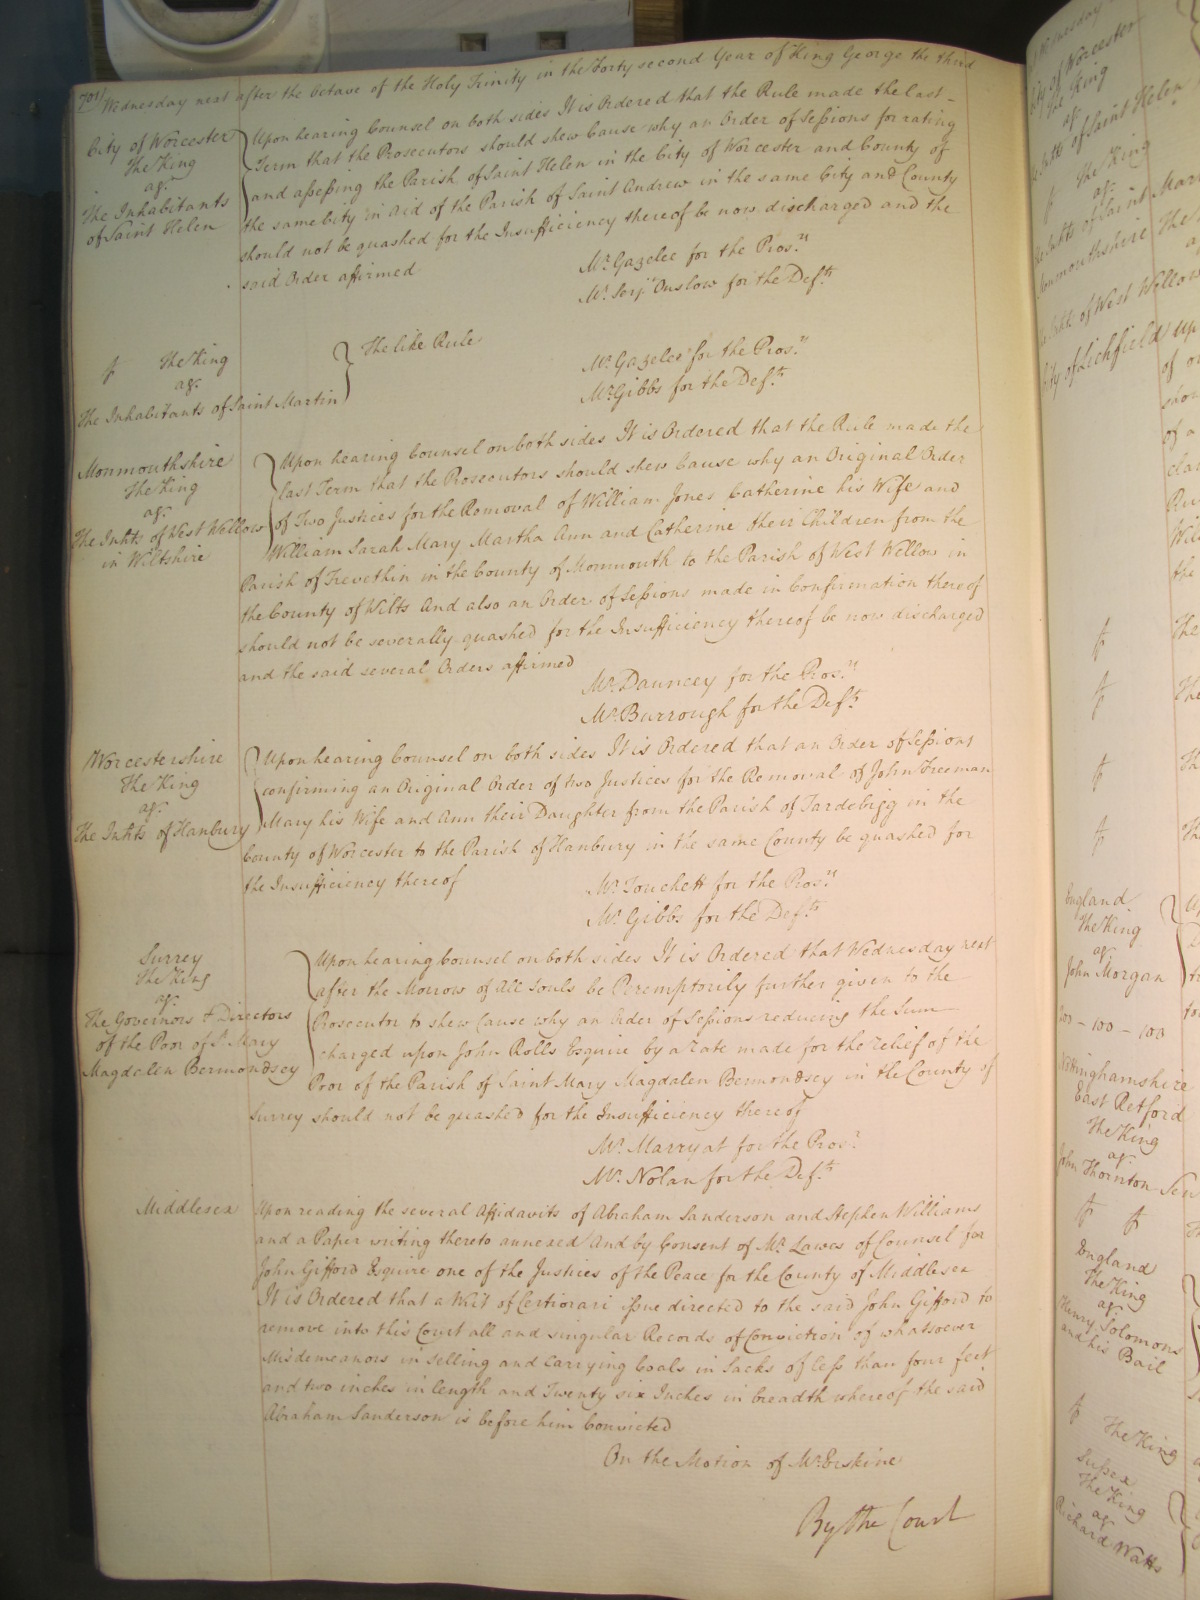 701 Wednesday next after the Octave of the Holy Trinity in the Forty second Year of King George the third
City of Worcester
The King
agt
The Inhabitants
of Saint Helen
Upon hearing Counsel on both sides It is Ordered that the Rule made the last
Term that the Prosecutors should shew Cause why an Order of Sessions for rating
and assessing the Parish of Saint Helen in the City of Worcester and County of
the same City in Aid of the Parish of Saint Andrew in the same City and County
should not be quashed for the Insufficiency thereof be now discharged and the
said Order affirmed
Mr. Gazelee for the Pros.rs
Mr. Serjt Onslow for the Def.ts
The King
agt
The Inhabitants of Saint Martin
The like Rule
Mr. Gazelee for the Pros.rs
Mr. Gibbs for the Def.ts
Monmouthshire
The King
agt
The Inhts of West Wellow
in Wiltshire
Upon hearing Counsel on both sides It is Ordered that the Rule made the
last Term that the Prosecutors should shew Cause why an Original Order
of Two Justices for the Removal of William Jones Catherine his Wife and
William Sarah Mary Martha Ann and Catherine their Children from the
Parish of Trevethin in the County of Monmouth to the Parish of West Wellow in
the County of Wilts And also an Order of Sessions made in Confirmation thereof
should not be severally quashed for the Insufficiency thereof be now discharged
and the said several Orders affirmed
Mr. Dauncey for the Pros.rs
Mr. Burrough for the Def.ts
Worcestershire
The King
agt
The Inhts of Hanbury
Upon hearing Counsel on both sides It is Ordered that an Order of Sessions
confirming an Original Order of two Justices for the Removal of John Freeman
Mary his Wife and Ann their Daughter from the Parish of Tardebigg in the
County of Worcester to the Parish of Hanbury in the same County be quashed for
the Insufficiency thereof
Mr. Touchett for the Pros.rs
Mr. Gibbs for the Def.ts
Surrey
The King
agt
The Governors & Directors
of the Poor of St. Mary
Magdalen Bermondsey
Upon hearing Counsel on both sides It is Ordered that Wednesday next
after the Morrow of All Souls be Peremptorily further given to the
Prosecutor to shew Cause why an Order of Sessions reducing the Sum
charged upon John Rolls Esquire by a Rate made for the relief of the
Poor of the Parish of Saint Mary Magdalen Bermondsey in the County of
Surrey should not be quashed for the Insufficiency thereof
Mr. Marryat for the Pros.r
Mr. Nolan for the Def.ts
Middlesex
Upon reading the several Affidavits of Abraham Sanderson and Stephen Williams
and a Paper writing thereto annexed And by Consent of Mr. Lawes of Counsel for
John Gifford Esquire one of the Justices of the Peace for the County of Middlesex
It is Ordered that a Writ of Certiorari issue directed to the said John Gifford to
remove into this Court all and singular Records of Conviction of whatsoever
Misdemeanors in selling and carrying Coals in Sacks of less than four feet
and two inches in length and Twenty six Inches in breadth whereof the said
Abraham Sanderson is before him Convicted
On the Motion of Mr. Erskine
By the Court
City of Worcester
The King
agt
of Saint Helen
The King
agt
of Saint Mar
Monmouthshire
of West Wellow
City of Lichfield
England
The King
agt
John Morgan
100 - 100 - 100
Nottinghamshire
East Retford
The King
agt
John Thornton Sen
England
The King
agt
Henry Solomons
and his Bail
The King
Sussex
The King
agt
Richard Watts